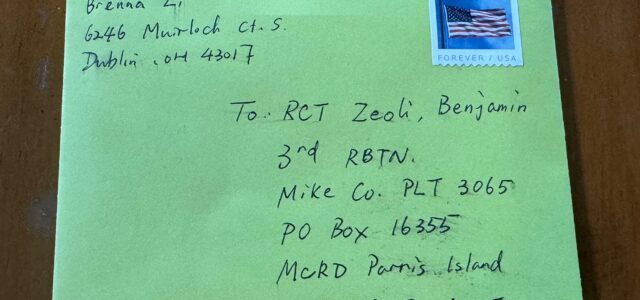 Brenna Li
6246 Muirloch Ct. S.
Dublin, OH 43017
FOREVER / USA
To: RCT Zeoli, Benjamin
3rd RBTN.
Mike Co. PLT 3065
PO Box 16355
MCRD Parris Island